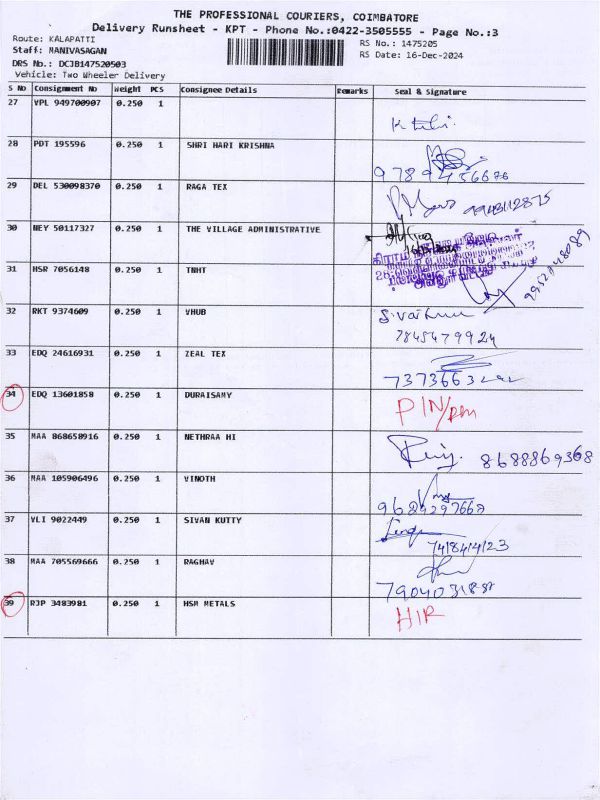 THE PROFESSIONAL COURIERS, COIMBATORE
Delivery Runsheet - KPT - Phone No.:0422-3505555 - Page No.:3
Route: KALAPATTI
RS No.: 1475205
Staff: MANIVASAGAN
RS Date: 16-Dec-2024
DRS No.: DCJB147520503
Vehicle: Two Wheeler Delivery
S No Consignment No Weight PCS Consignee Details Remarks Seal & Signature
27 VPL 949700907 0.250 1
28 PDT 195596 0.250 1 SHRI HARI KRISHNA
29 DEL 530098370 0.250 1 RAGA TEX 9943112875
30 NEY 50117327 0.250 1 THE VILLAGE ADMINISTRATIVE
31 HSR 7056148 0.250 1 TNHT
32 RKT 9374609 0.250 1 VHUB
7845479924
33 EDQ 24616931 0.250 1 ZEAL TEX
34 EDQ 13601858 0.250 1 DURAISAMY
35 MAA 868658916 0.250 1 NETHRAA HI 8688869368
36 MAA 105906496 0.250 1 VINOTH
9689297668
37 VLI 9022449 0.250 1 SIVAN KUTTY
7418414123
38 MAA 705569666 0.250 1 RAGHAV
39 RJP 3483981 0.250 1 HSM METALS